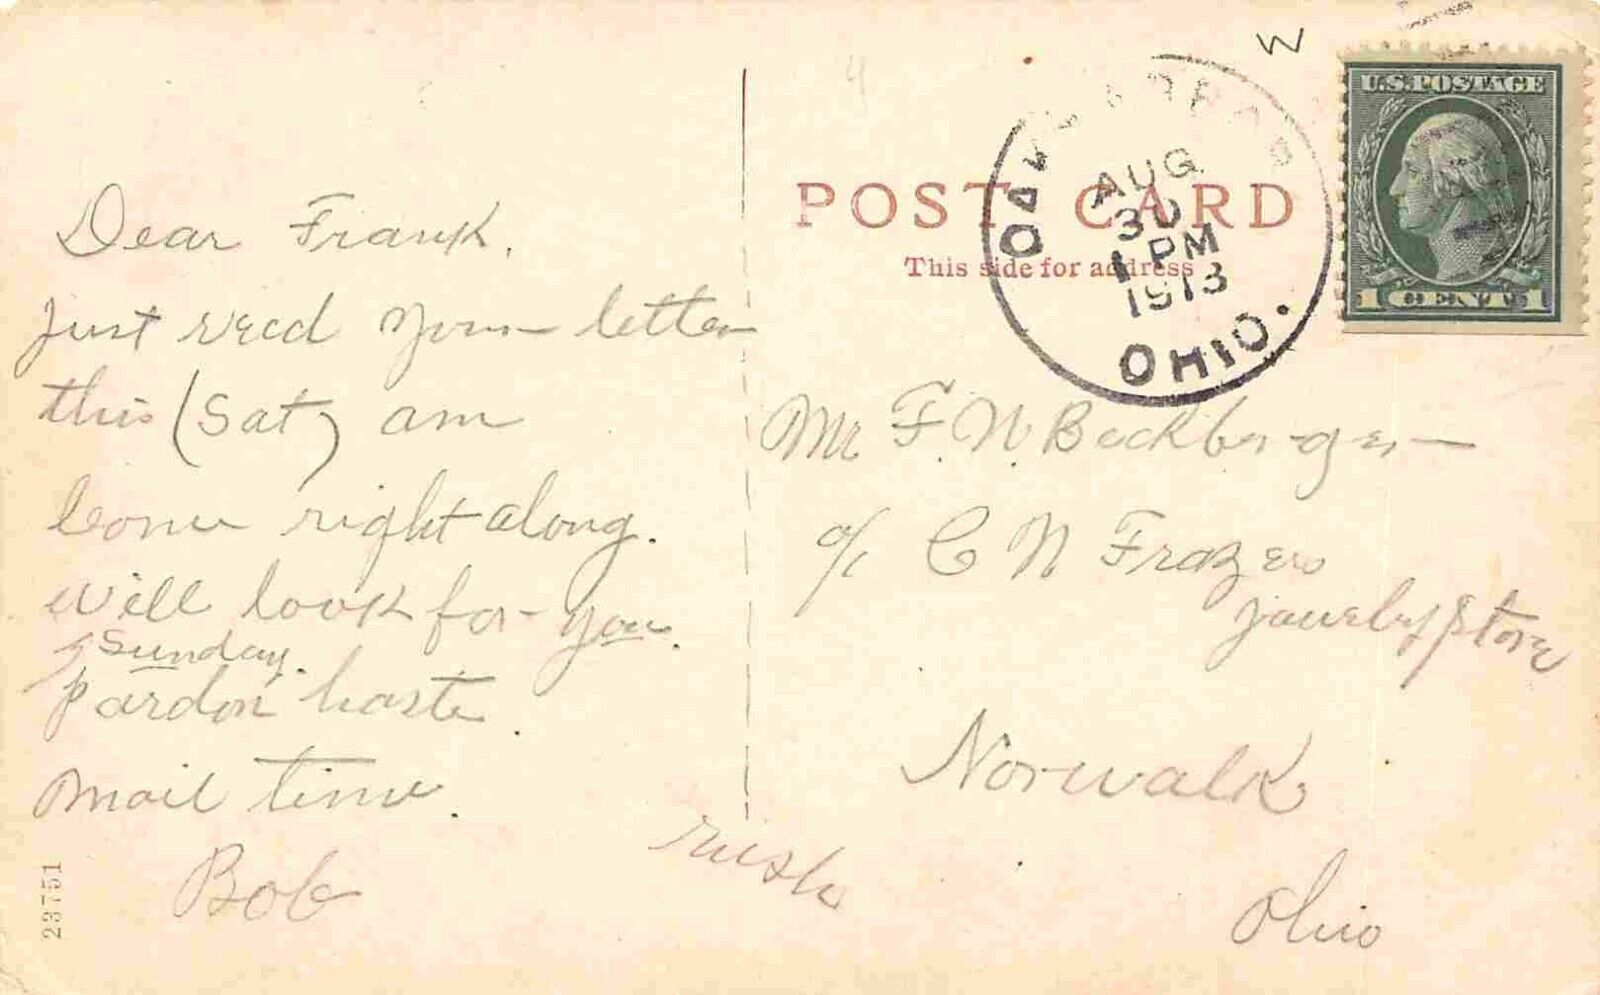 Dear Frank,
Just recd your letter
this (Sat) am
Come right along.
will look for you
Sunday.
pardon haste.
Mail time.
Bob
rush
23751
POST CARD
This side for address
AUG
30
1 PM
1913
OHIO.
W
U.S. POSTAGE
1 CENT 1
Mr F. N. Beckberger
c/o C N Frazers
Jewelry Store
Norwalk
Ohio